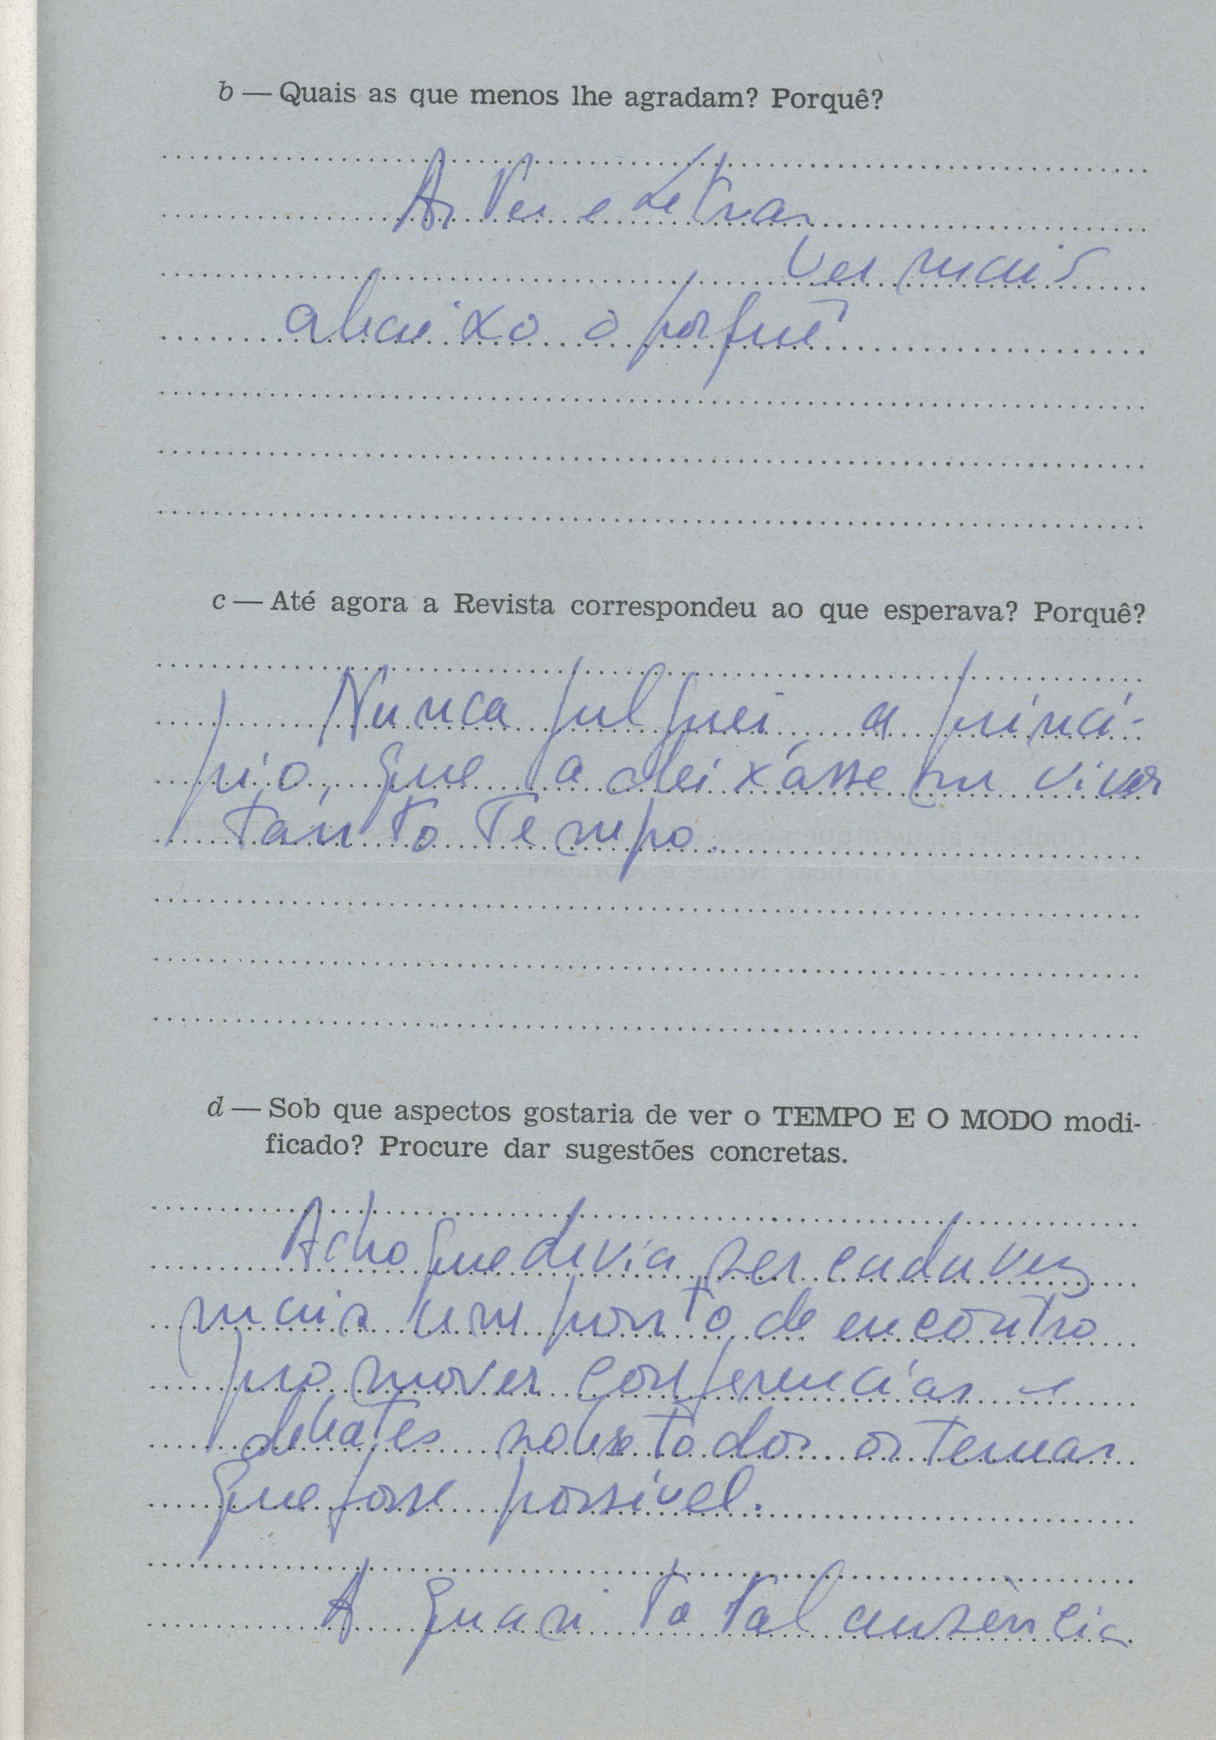 b — Quais as que menos lhe agradam? Porquê?
Artes e Letras
Ver mais
abaixo o porquê
c — Até agora a Revista correspondeu ao que esperava? Porquê?
Nunca julguei a princí-
pio, que a deixásse viver
tanto tempo.
d — Sob que aspectos gostaria de ver o TEMPO E O MODO modi-
ficado? Procure dar sugestões concretas.
Acho que devia ser cada vez
mais um ponto de encontro
promover conferencias e
debates sobre todos os temas
que fosse possivel.
A quasi total ausência